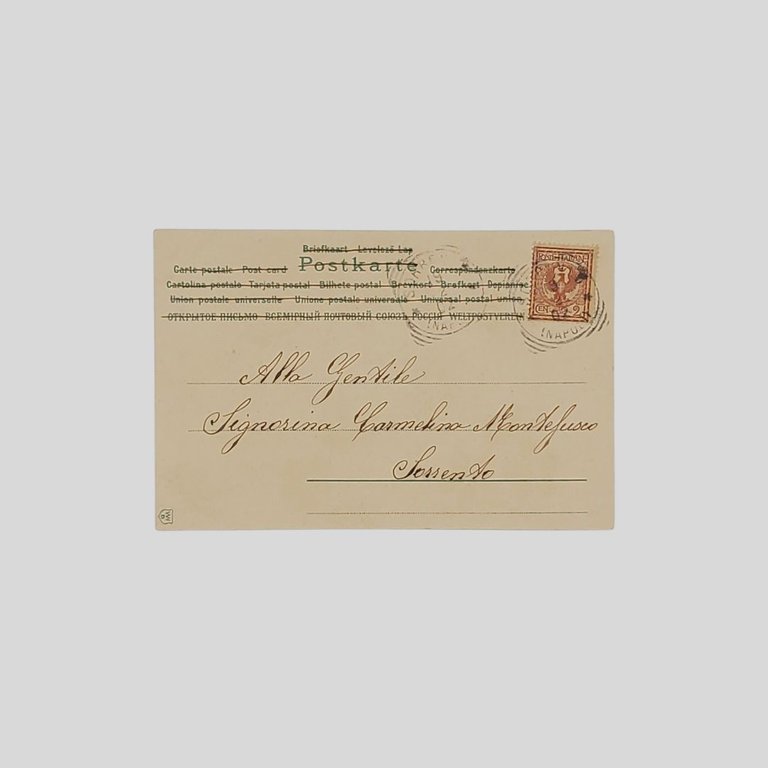 Briefkaart Levelező Lap
Postkarte
Carte postale Post card Correspondenzkarte
Cartolina postale Tarjeta postal Bilhete postal Brevkort Brefkort Dopisnice
Union postale universelle Unione postale universale Universal postal union
ОТКРЫТОЕ ПИСЬМО ВСЕМІРНЫЙ ПОЧТОВЫЙ СОЮЗЪ РОССІЯ WELTPOSTVEREIN
POSTE ITALIANE
CENT. 2
(NAPOLI)
(NAPOLI)
Alla Gentile
Signorina Carmelina Montefusco
Sorrento